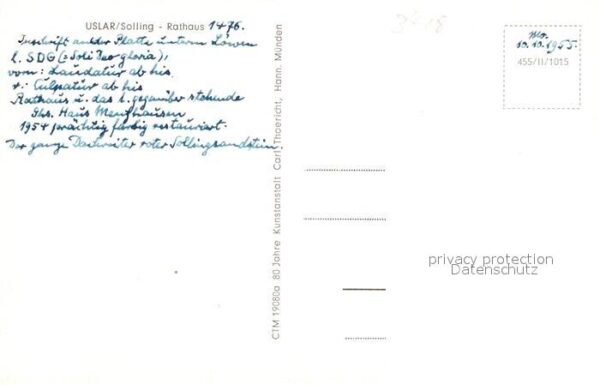 USLAR/Solling - Rathaus 1476.
Inschrift auf der Platte unterm Löwen
l. SDG (= Soli Deo gloria),
vorn: Laudatur ab his
r.: Culpatur ab his
Rathaus u. das l. gegenüber stehende
Ghs. Haus Menzhausen
1954 prächtig farbig restauriert.
Der ganze Dachreiter roter Sollingsandstein.
CTM 19080a 80 Jahre Kunstanstalt Carl Thoericht, Hann. Münden
10.10.1955.
455/II/1015
privacy protection
Datenschutz